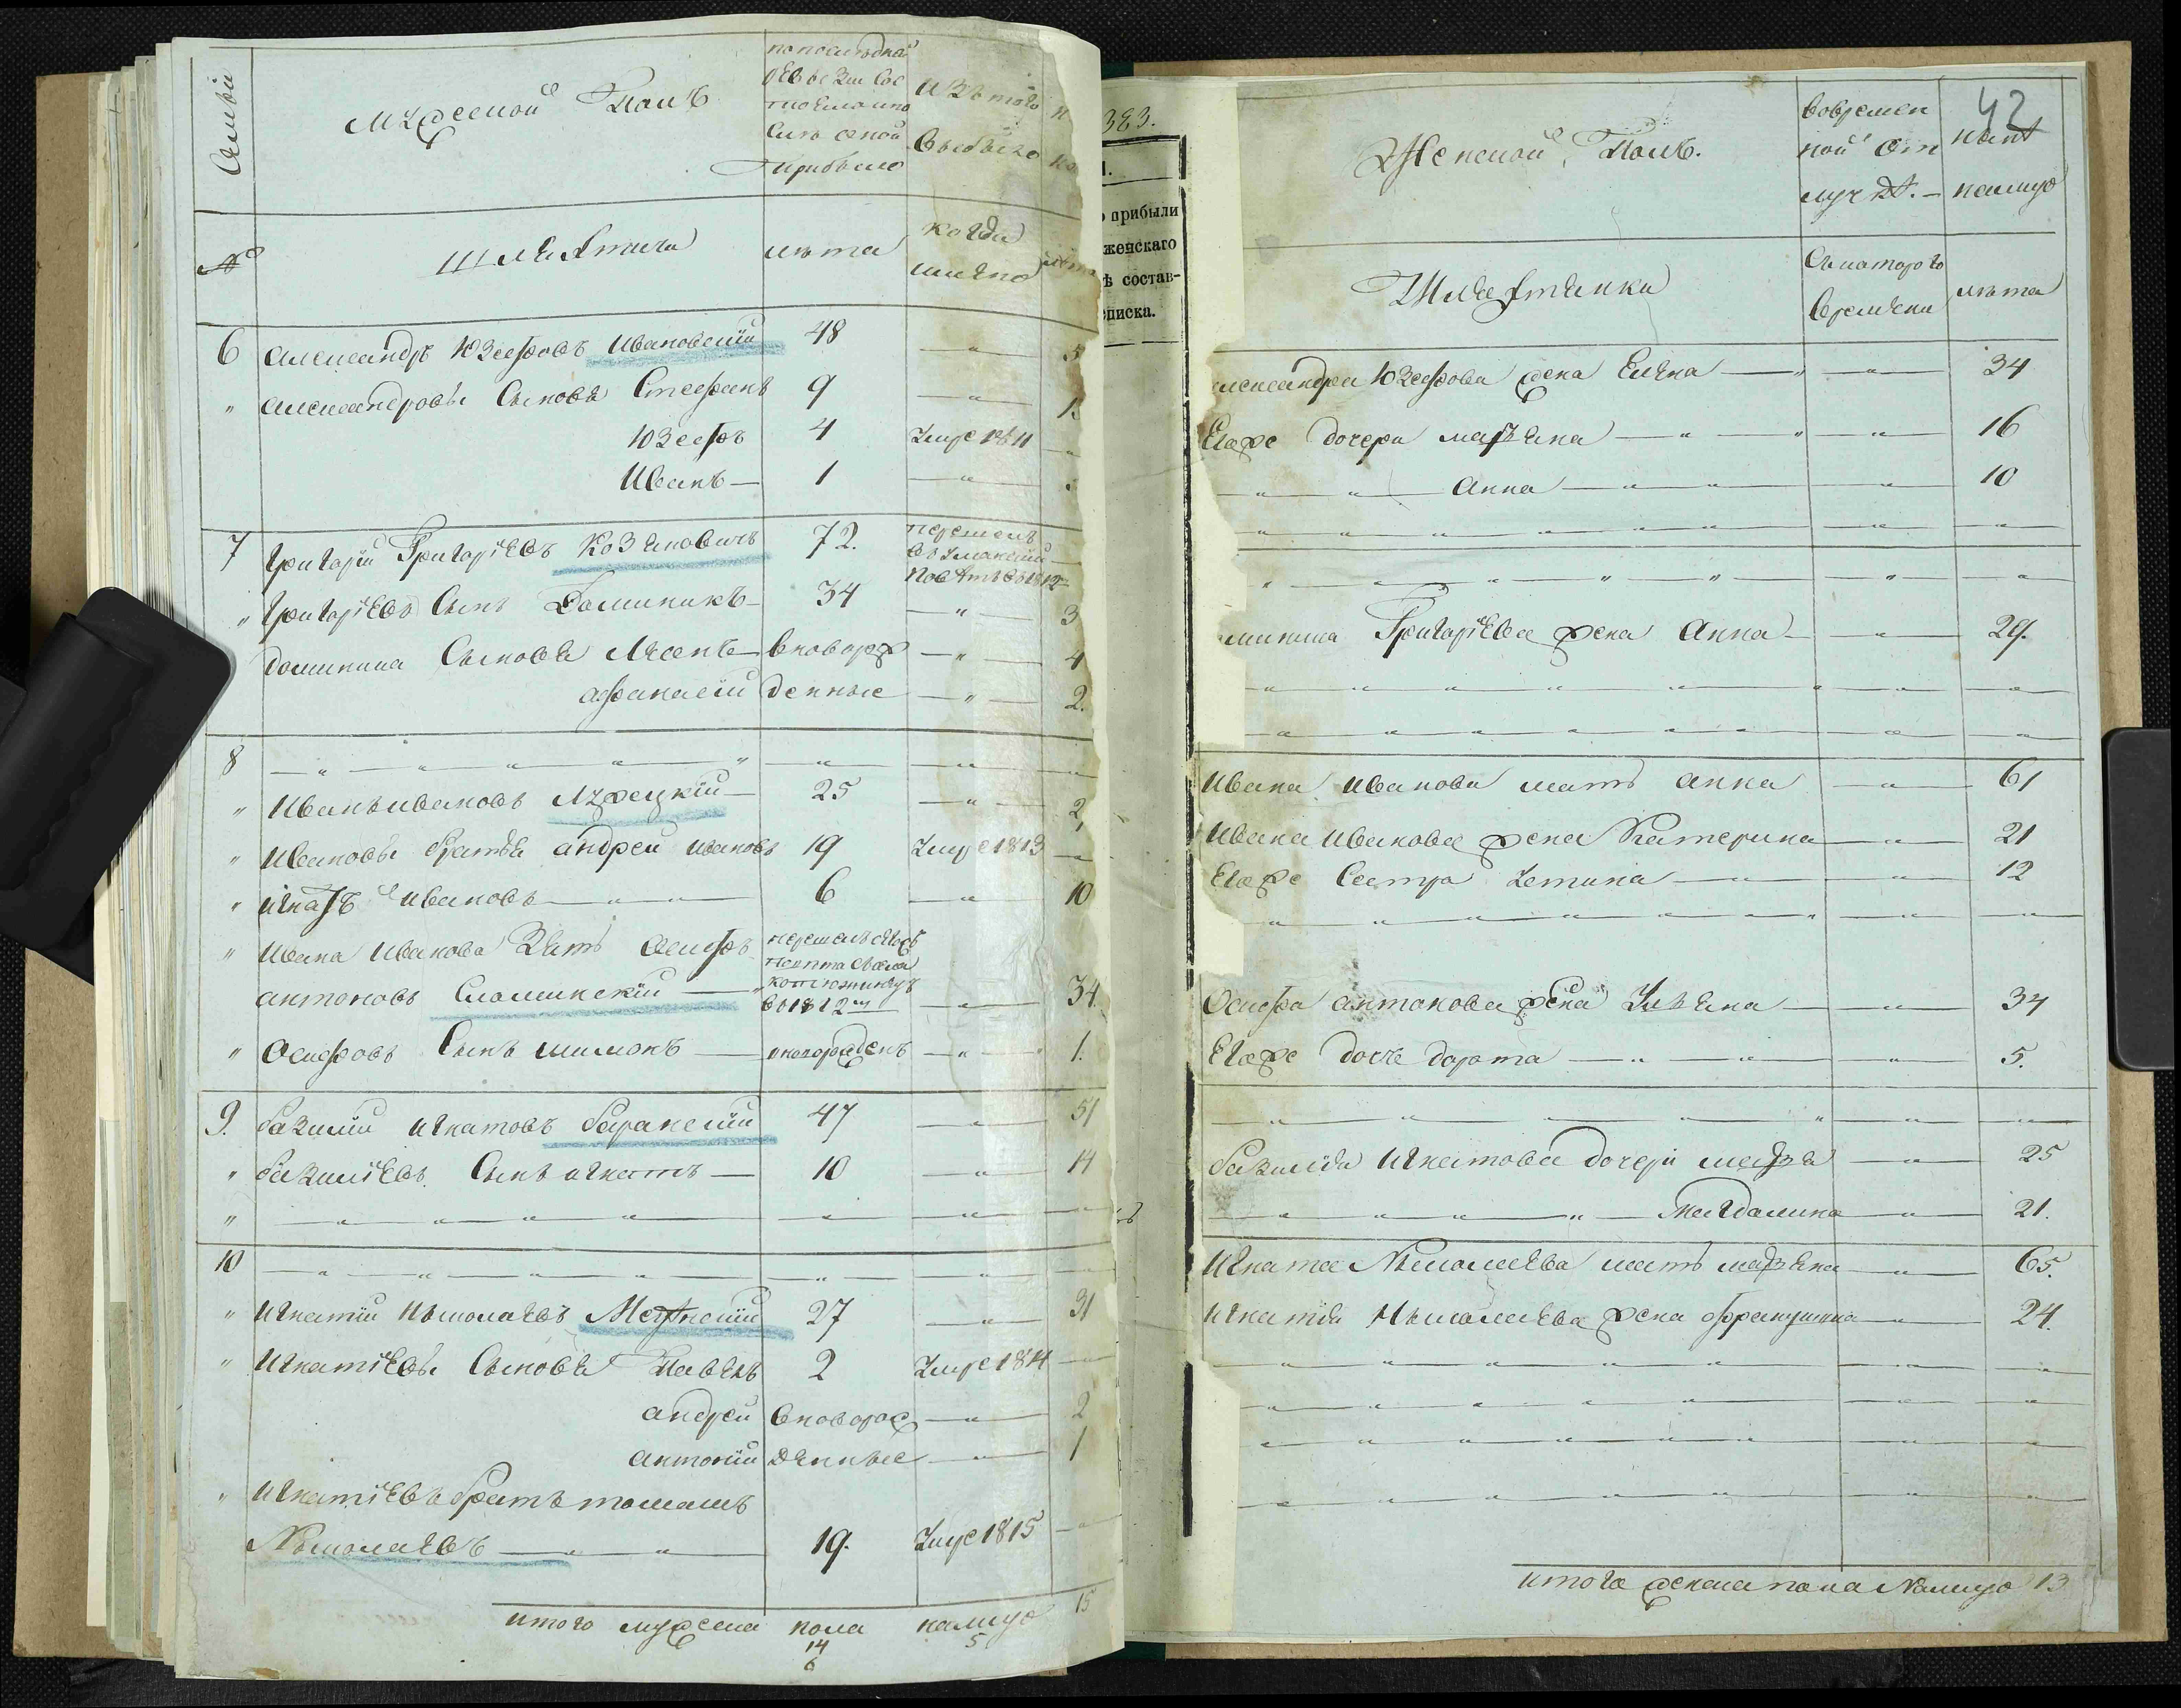 Семьи
Мужеской Полъ
по последней
ревизіи сос
тояло и по
сле оной
прибыло
Изъ того
выбыло
№
Шляхтичи
лѣта
когда
имено
лѣта
6 Александръ Юзефовъ Ивановскій 48 — " —
" Александровы Сыновья Стефанъ 9 — " —
Юзефъ 4 Умре 1811
Иванъ — 1 — " —
7 Григорій Григоріевъ Козяковичъ 72.
перешелъ
въ Уманскій
Повѣтъ въ 1812
" Григоріевъ Сынъ Доминикъ — 34 — " — 3
Доминика Сыновья Лѣсонъ — вноворож — " — 4
Афанасій денные — " — 2.
8 — " — " — " — " — " — "
" Иванъ Ивановъ Лужецкій — 25 — " — 2
" Ивановы братья Андрей Ивановъ 19 Умре 1813 —
" Игнатъ Ивановъ — " — " 6 — " 10
" Ивана Иванова Зять Осифъ
перешелъ
въ 1812мъ
Антоновъ Сломинскій — " — 34.
" Осифовъ Сынъ Шимонъ — новорожденъ — " — 1.
9. Базилій Игнатовъ Баранскій 47 — " — 51
" Базиліевъ Сынъ Игнатъ — 10 — " — 14
" — " — " — " — " — " — " —
10 — " — " — " — " — " — " —
" Игнатій Николаевъ 27 — " — 31
" Игнатіевы Сыновья Павелъ 2 Умре 1814 —
Андрей вноворож — " — 2
Антоній денные — " — 1
" Игнатіевъ братъ Томашъ
Николаевъ — " — " 19. Умре 1815 — "
итого мужеска пола налицо 15
14 5
6
383.
прибыли
женскаго
ѣ состав-
списка.
42
Женской Полъ.
Во времен
ной от
лучкѣ. —
налицо
Шляхтянки
Съ котораго
времени
лѣта
Александра Юзефова жена Елена — " — " — 34
Егоже дочери Марьяна — " — " — " — 16
— " — " — Анна — " — " — " — 10
— " — " — " — " — " — " — " — " —
— " — " — " — " — " — " — " —
Доминика Григоріева жена Анна — " — 29.
— " — " — " — " — " — " — " — " —
— " — " — " — " — " — " — " — " —
Ивана Иванова мать Анна — " — 61
Ивана Иванова жена Катерина — " — 21
Егоже Сестра Устина — " — " — 12
— " — " — " — " — " — " — " — " —
Осифа Антонова жена Ульяна — " — 34
Егоже дочь Дорота — " — " — " — 5.
— " — " — " — " — " — " — " —
Базилія Игнатова дочери Марья — " — 25
— " — " — " — " — Магдалина — " — 21.
Игната Николаева мать Марьяна — " — 65.
Игнатія Николаева жена Францишка — " — 24.
— " — " — " — " — " — " — " — " —
— " — " — " — " — " — " — " — " —
— " — " — " — " — " — " — " — " —
— " — " — " — " — " — " — " — " —
итого женска пола налицо 13